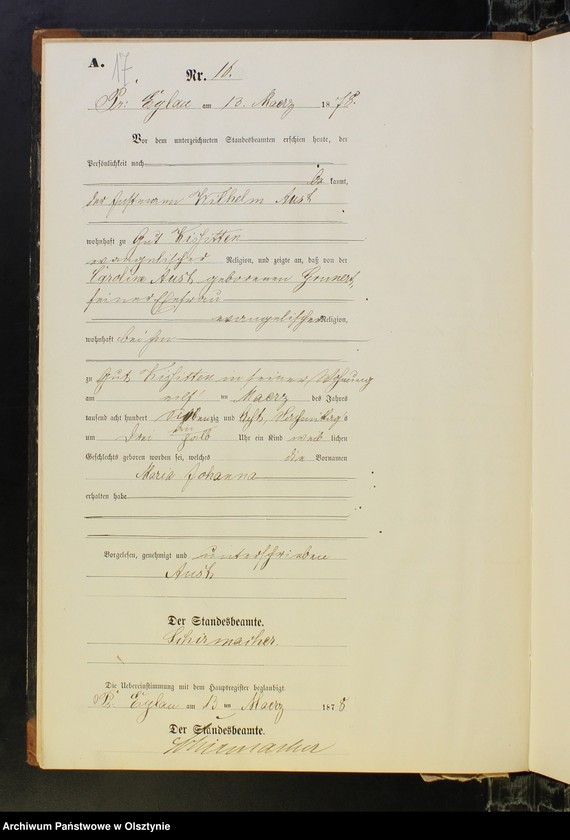 A.
17
Nr. 16.
Pr: Eylau am 13. Maerz 1878.
Vor dem unterzeichneten Standesbeamten erschien heute, der
Persönlichkeit nach
be kannt,
der Wilhelm Aust
wohnhaft zu Gut
evangelischer Religion, und zeigte an, daß von der
Caroline Aust geborenen Grunert,
seiner Ehefrau
evangelischer Religion,
wohnhaft bei ihm
zu Gut in seiner Wohnung
am elf ten Maerz des Jahres
tausend acht hundert siebenzig und acht, Nachmittags
um drei Uhr ein Kind weib lichen
Geschlechts geboren worden sei, welches die Vornamen
Maria Johanna
erhalten habe
Vorgelesen, genehmigt und unterschrieben
Aust
Der Standesbeamte.
Schirmacher.
Die Uebereinstimmung mit dem Hauptregister beglaubigt.
Pr: Eylau am 13 ten Maerz 1878
Der Standesbeamte.
Schirmacher
Archiwum Państwowe w Olsztynie